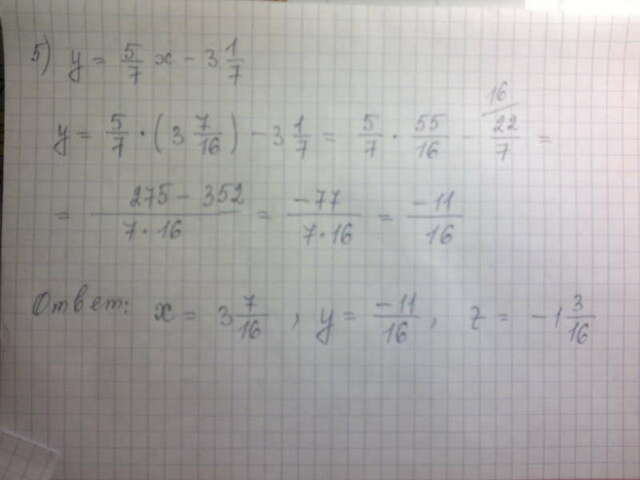 5) y = 5/7 x - 3 1/7
y = 5/7 · (3 7/16) - 3 1/7 = 5/7 · 55/16 - 16/ 22/7 =
= 275 - 352 / 7 · 16 = -77 / 7 · 16 = -11 / 16
Ответ: x = 3 7/16, y = -11/16, z = -1 3/16